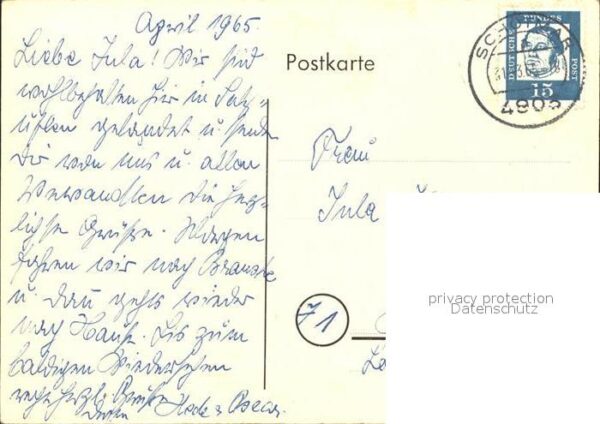 April 1965.
Liebe Jula! Wir sind
wohlbehalten hier in Salz-
uflen gelandet u. senden
Dir von uns u. allen
Verwandten die herz-
lichsten Grüße. Morgen
fahren wir nach
u. dann gehts wieder
nach Hause. Bis zum
baldigen Wiedersehen
recht herzl. Grüße
Deine u. Oscar.
Postkarte
Frau
Jula
71
SCHÖTMAR
4903
DEUTSCHE BUNDESPOST
15
privacy protection
Datenschutz